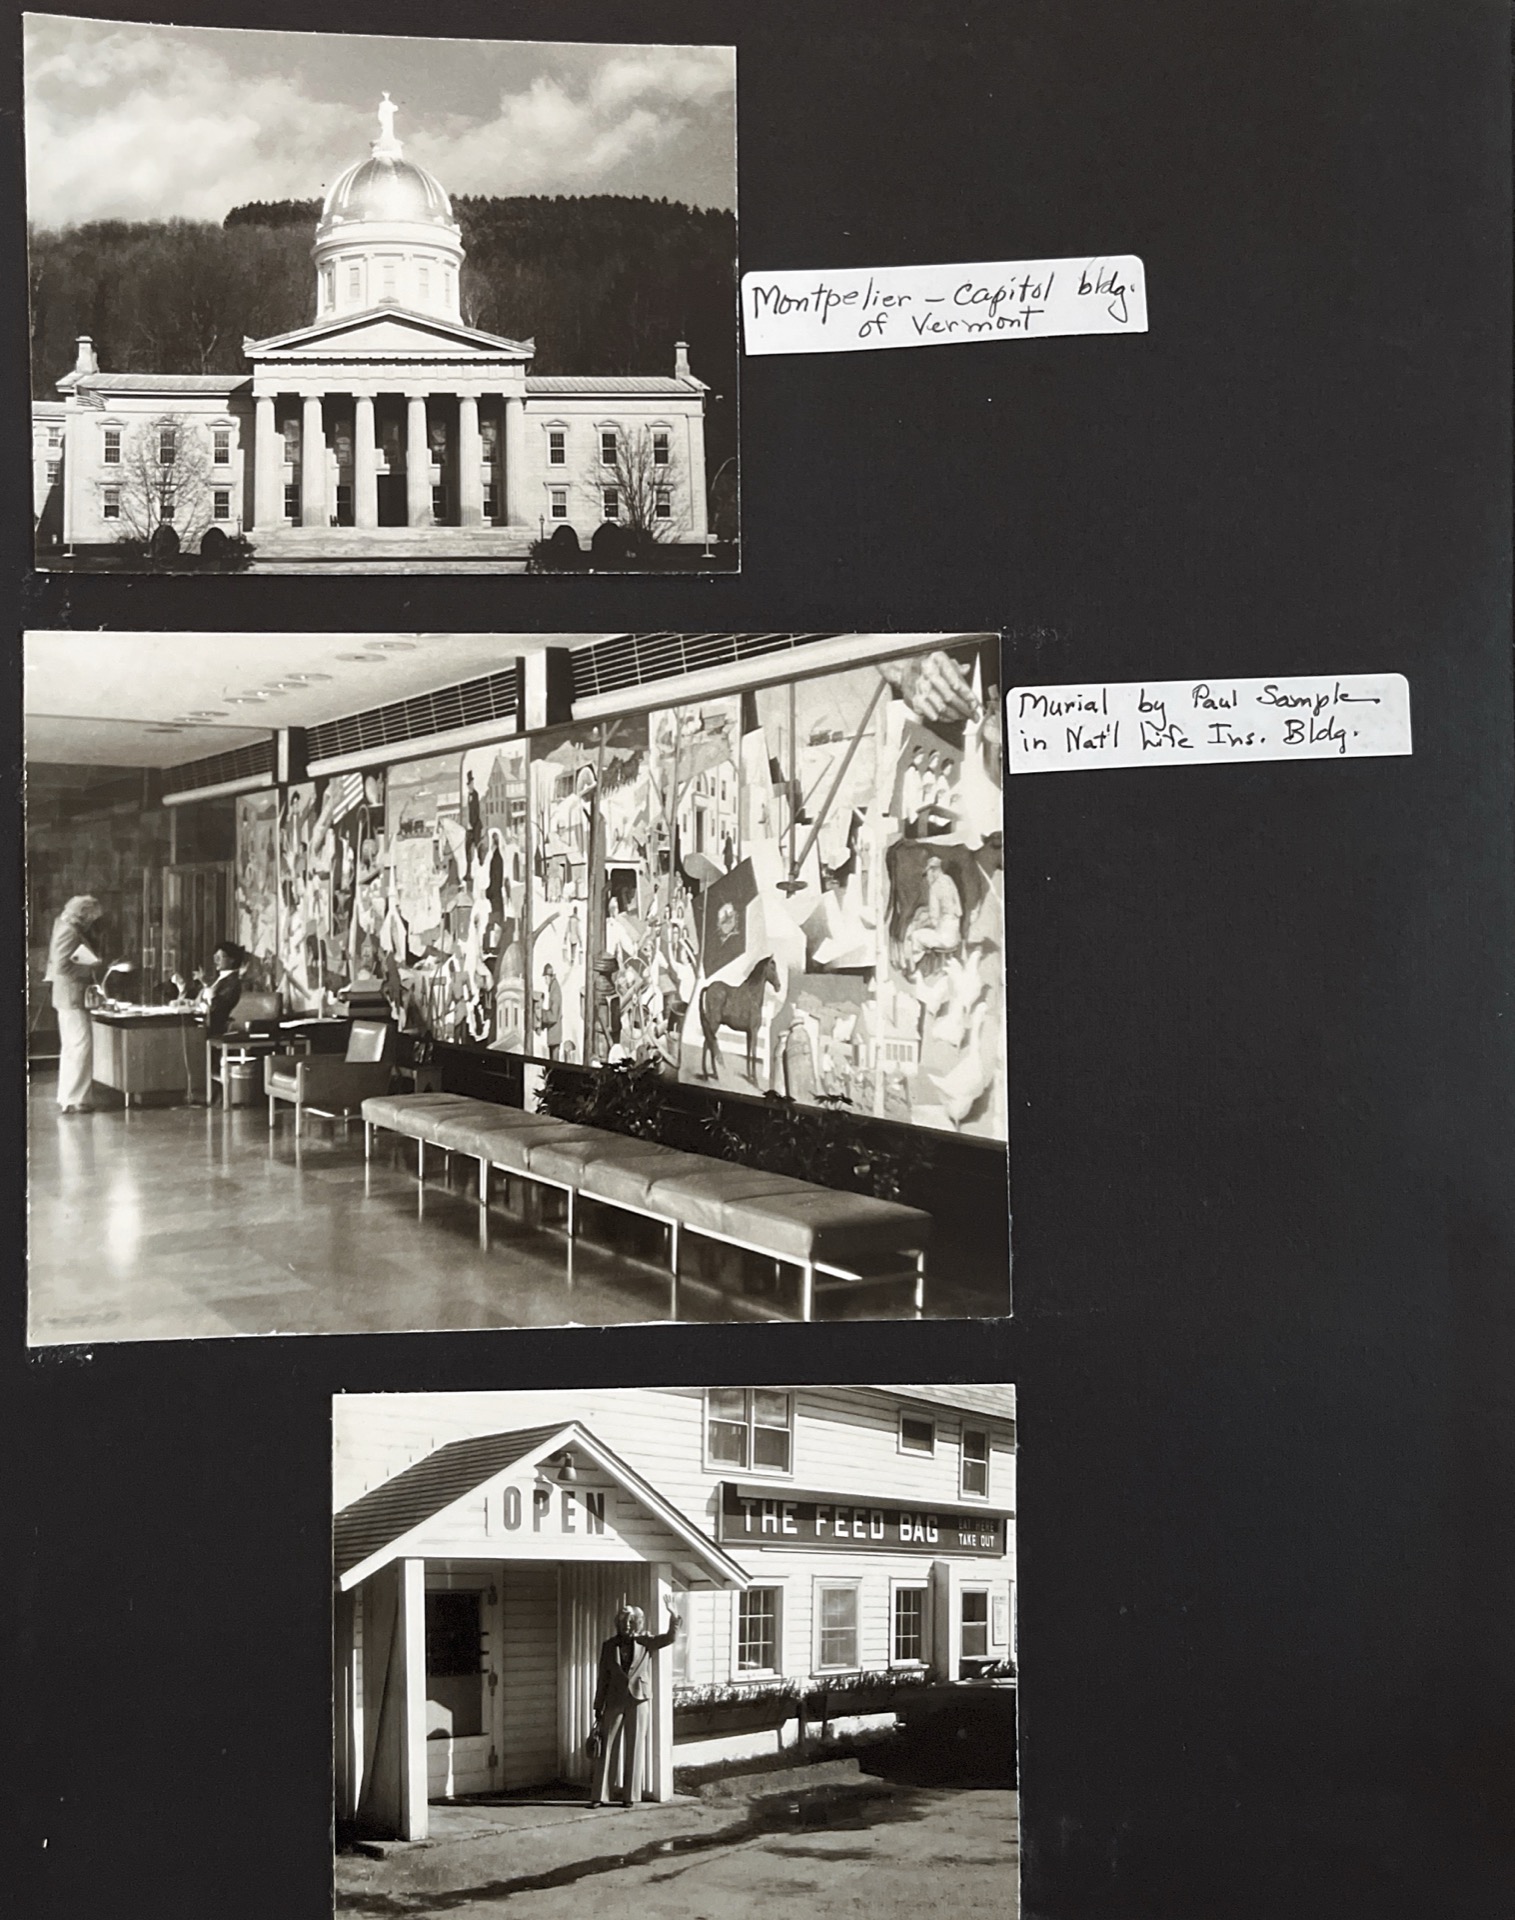 Montpelier – Capitol bldg.
of Vermont
Murial by Paul Sample
in Nat'l Life Ins. Bldg.
OPEN
THE FEED BAG
EAT HERE
TAKE OUT